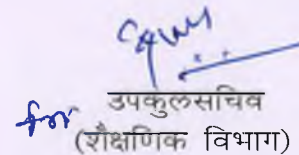 for उपकुलसचिव
(शैक्षणिक विभाग)